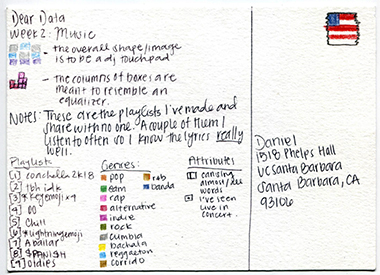 Dear Data
Week 2: Music
- the overall shape/image
is to be a dj touchpad
- the columns of boxes are
meant to resemble an
equalizer.
Notes: These are the playlists I've made and
share with no one. A couple of them I
listen to often so I know the lyrics really
well.
Playlists
[1] coachella 2k18
[2] tbh idk
[3] *key emoji x4
[4] 00
[5] Chill
[6] *lightning emoji
[7] A bailar
[8] SPANISH
[9] oldies
Genres:
pop
edm
rap
alternative
indie
rock
cumbia
bachata
reggaeton
corrido
r&b
banda
Attributes
I know
almost/all
words
I've seen
live in
concert.
Daniel
1518 Phelps Hall
UC Santa Barbara
Santa Barbara, CA
93106